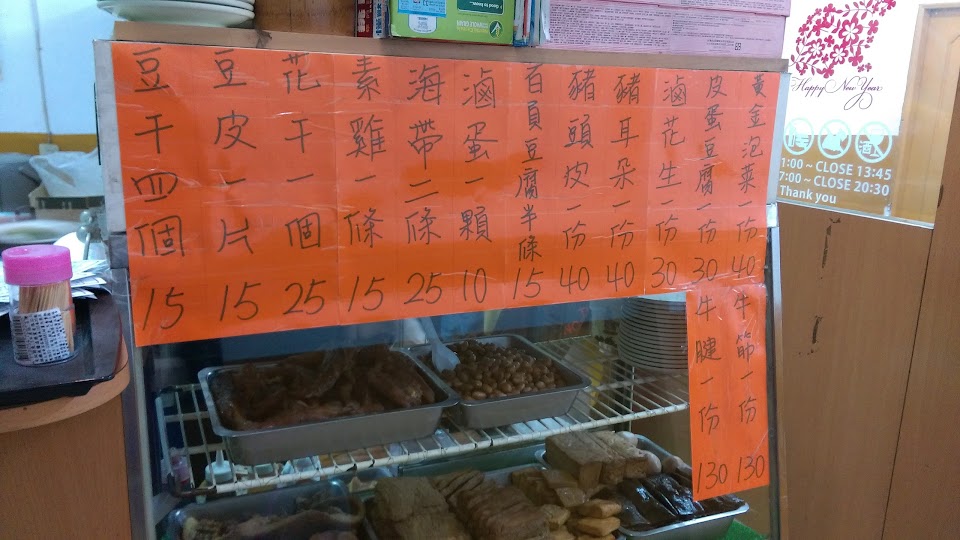 豆干四個 15
豆皮一片 15
花干一個 25
素雞一條 15
海帶二條 25
滷蛋一顆 10
百頁豆腐半條 15
豬頭皮一份 40
豬耳朵一份 40
滷花生一份 30
皮蛋豆腐一份 30
黃金泡菜一份 40
牛腱一份 130
牛筋一份 130
Happy New Year
1:00 ~ CLOSE 13:45
7:00 ~ CLOSE 20:30
Thank you